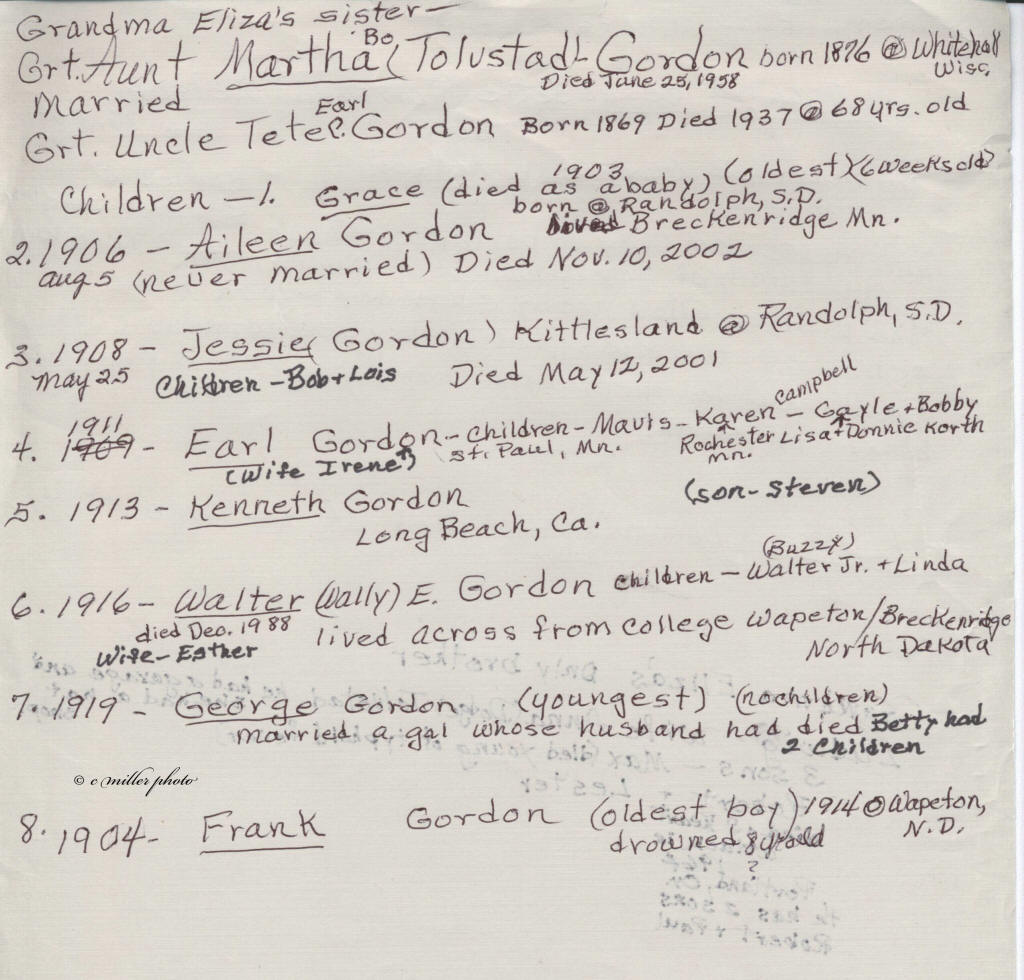 Grandma Eliza's sister—
Bo
Grt. Aunt Martha (Tolustad) Gordon born 1876 @ Whitehall Wisc,
Died June 25, 1958
married
Earl
Grt. Uncle Tete P. Gordon Born 1869 Died 1937 @ 68 yrs. old
1903
Children — 1. Grace (died as a baby) (oldest) (6 weeks old)
born @ Randolph, S.D.
2. 1906 - Aileen Gordon lived Breckenridge Mn.
Aug 5 (never married) Died Nov. 10, 2002
3. 1908 - Jessie (Gordon) Kittlesland @ Randolph, S.D.
May 25 Children - Bob + Lois Died May 12, 2001
Campbell
1911
4. 1909 - Earl Gordon - Children - Mavis - Karen - Gayle + Bobby
(Wife Irene) St. Paul, Mn. Rochester Mn. Lisa + Donnie Korth
(son - Steven)
5. 1913 - Kenneth Gordon
Long Beach, Ca.
(Buzzy)
6. 1916 - Walter (Wally) E. Gordon Children - Walter Jr. + Linda
died Dec. 1988 lived across from college Wapeton/Breckenridge
Wife - Esther North Dakota
7. 1919 - George Gordon (youngest) (no children)
married a gal whose husband had died Betty had
2 Children
© c miller photo
8. 1904 - Frank Gordon (oldest boy) 1914 @ Wapeton, N.D.
drowned 8 yr old
?